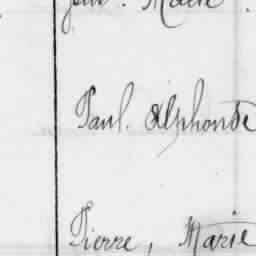 Jean. Marie
Paul. Alphonse
Pierre, Marie